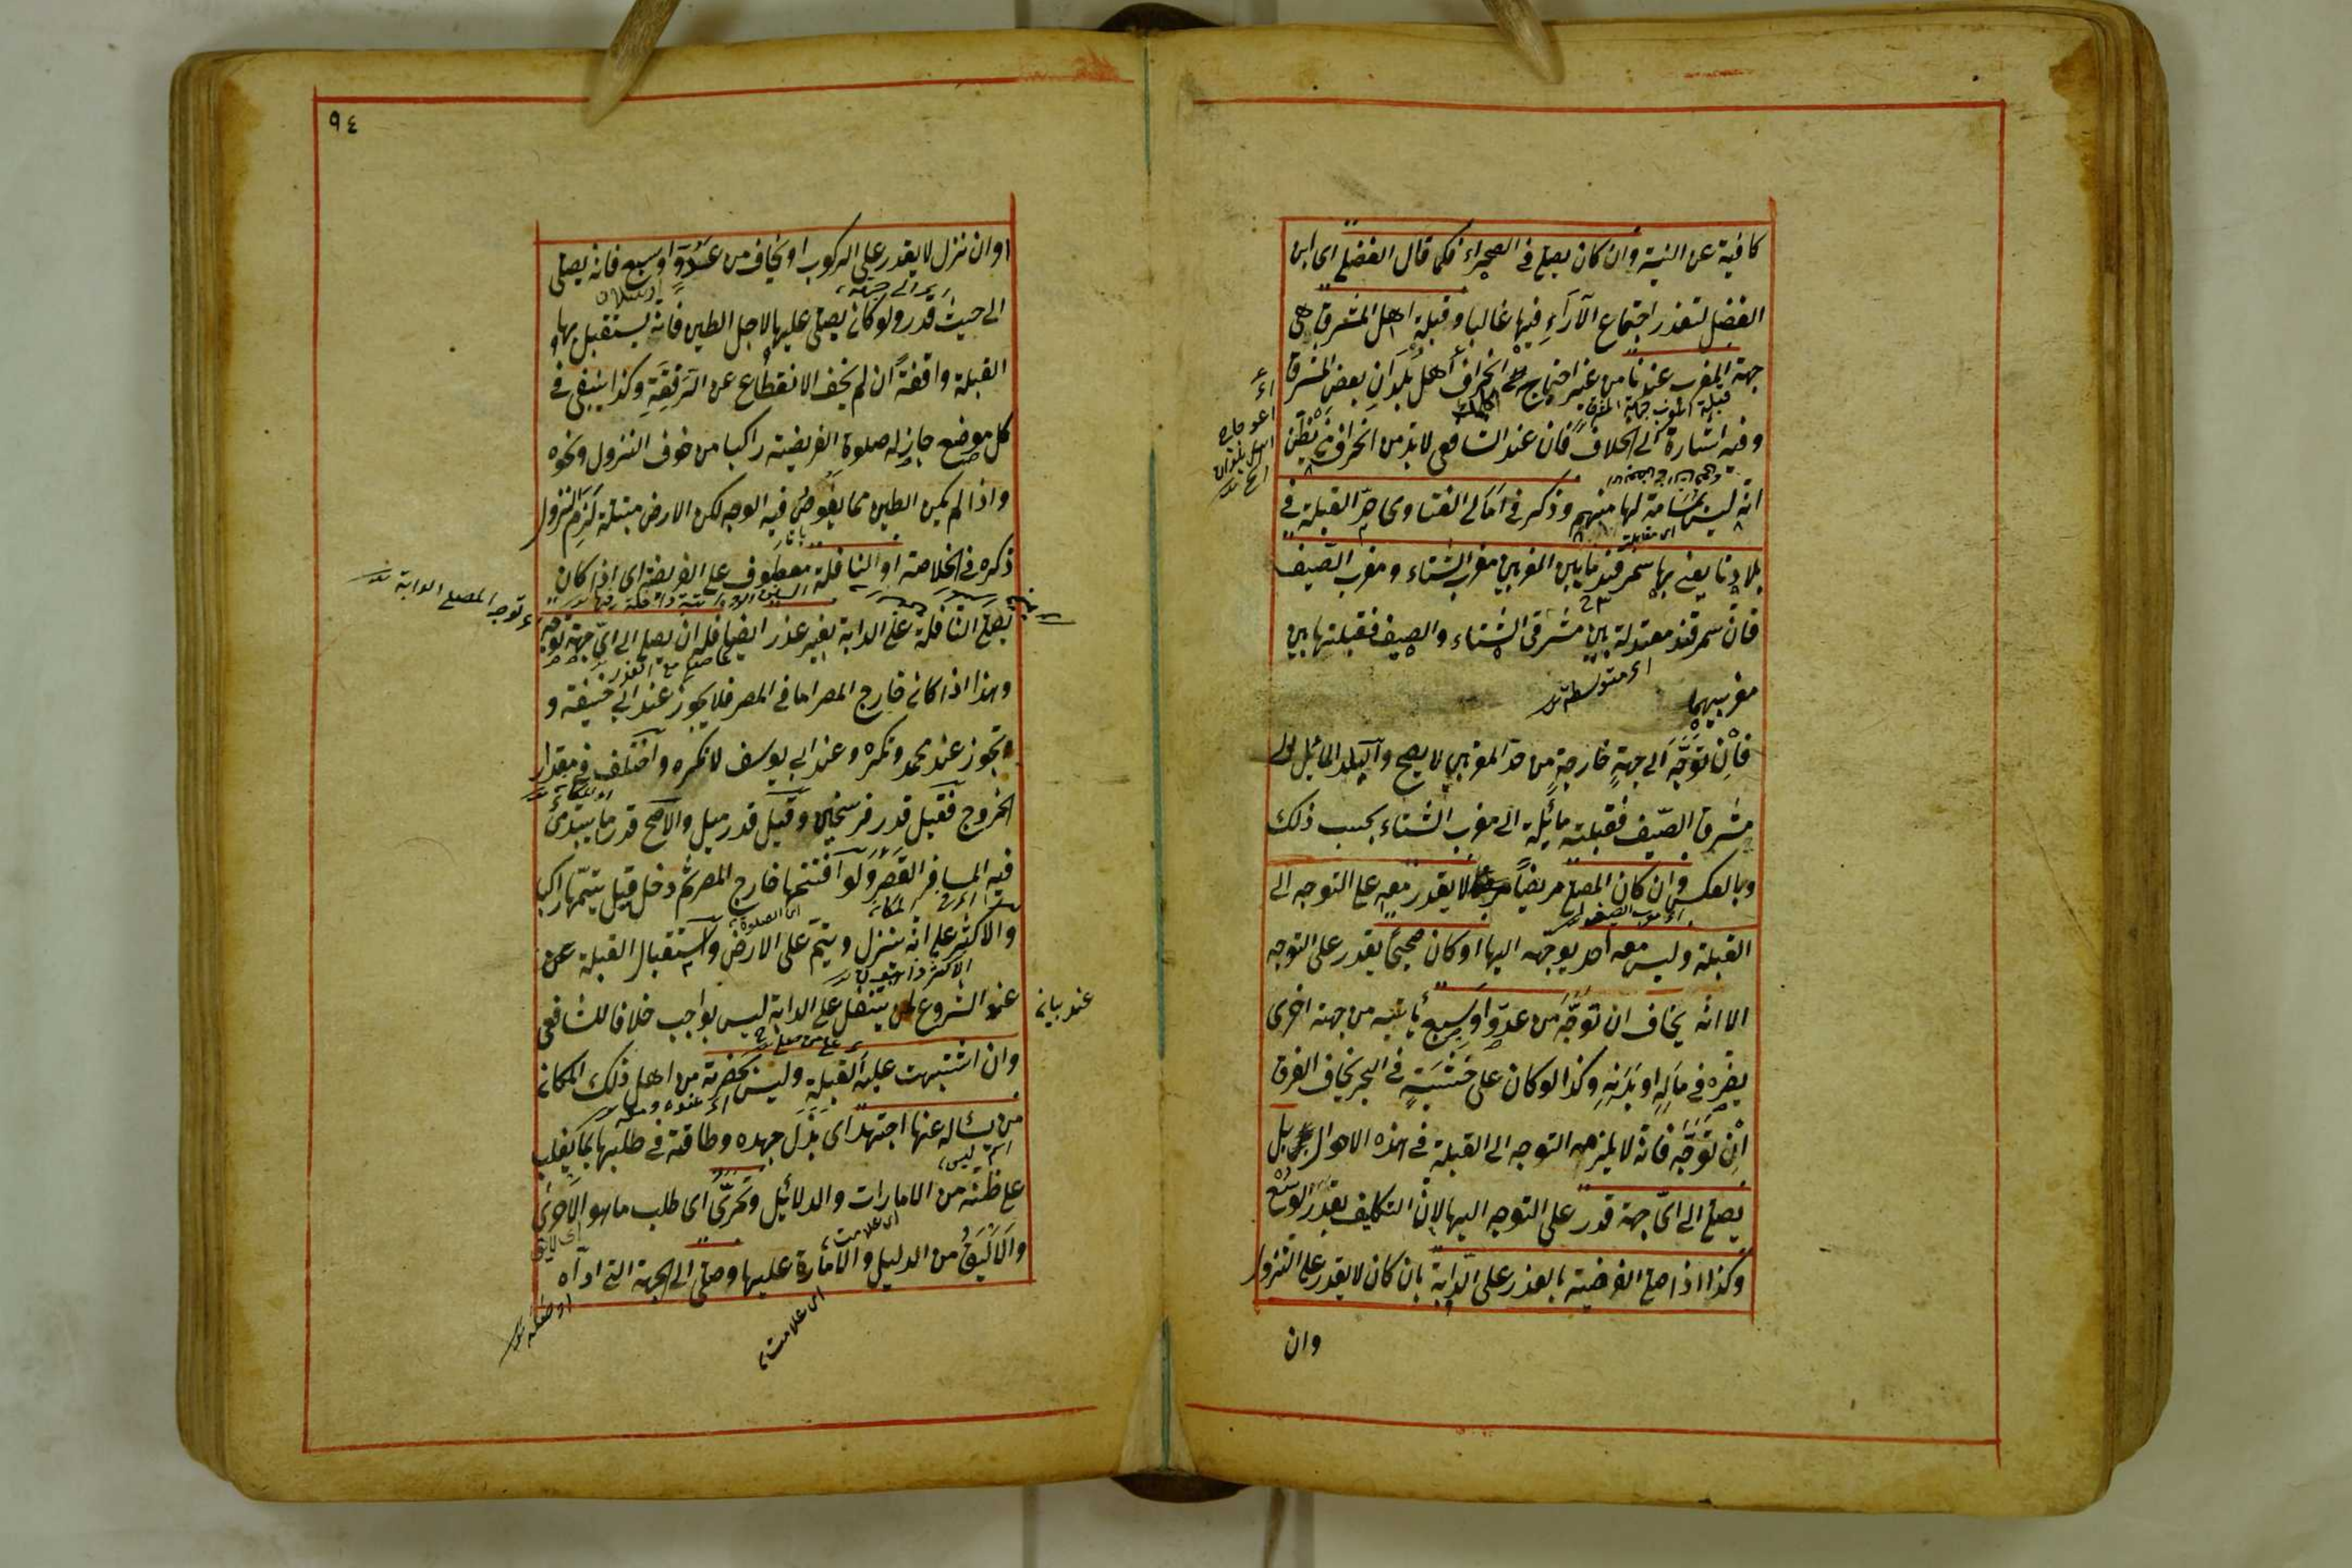 كافية عن النية وان كان يصلى فى الصحراء فكما قال الفضلى اى ابن
الفضل لتعذر اجتماع الآراء فيها غالبا وقبلة اهل المشرق هى
جهة المغرب عندنا من غير احتياج الى انحراف اهل بلدان بعض المشرق
وفيه اشارة الى الخلاف فان عند الشافعى لا بد من انحراف من يظن
انه ليس بمسامتة لها منهم وذكر فى امالى الفتاوى حد القبلة فى
اى مقابلة
بلادنا يعنى بها سمرقند ما بين المغربين مغرب الشتاء ومغرب الصيف
فان سمرقند معتدلة بين مشرقى الشتاء والصيف فقبلتها بين
اى متوسطة
مغربيهما
فان توجه الى جهة خارجة من حد المغربين لا يصح والبلد المائل الى
مشرق الصيف فقبلته مائلة الى مغرب الشتاء بحسب ذلك
وبالعكس وان كان المصلى مريضا مرضا لا يقدر معه على التوجه الى
القبلة وليس معه احد يوجهه اليها او كان صحيحا يقدر على التوجه
الا انه يخاف ان توجه من عدو او سبع يأتيه من جهة اخرى
يضره فى ماله او بدنه وكذا لو كان على خشبة فى البحر يخاف الغرق
ان توجه فانه لا يلزمه التوجه الى القبلة فى هذه الاحوال بل
يصلى الى اى جهة قدر على التوجه اليها لان التكليف بقدر الوسع
وكذا اذا صلى الفريضة بالعذر على الدابة بان كان لا يقدر على النزول
وان
٩٤
او ان نزل لا يقدر على الركوب او يخاف من عدو او سبع فانه يصلى
الى حيث قدر ولو كان يصلى عليها لاجل الطين فانه يستقبل بها
القبلة واقفة ان لم يخف الانقطاع عن الرفقة وكذا ينبغى فى
كل موضع جاز له صلوة الفريضة راكبا من خوف النزول ونحوه
واذا لم يكن الطين مما يغوص فيه الوجه لكن الارض مبتلة لزم النزول
ذكره فى الخلاصة او النافلة معطوف على الفريضة اى اذا كان
توجه المصلى الدابة
يصلى النافلة على الدابة بغير عذر ايضا فله ان يصلى الى اى جهة توجه
وهذا اذا كان خارج المصر اما فى المصر فلا يجوز عند ابى حنيفة و
وتجوز عند محمد وتكره وعند ابى يوسف لا تكره واختلف فى مقدار
الخروج فقيل قدر فرسخين وقيل قدر ميل والاصح قدر ما يبتدئ
فيه المسافر القصر ولو افتتحها خارج المصر ثم دخل قيل يتمها راكبا
اى الصلوة
والاكثر على انه ينزل ويتم على الارض واستقبال القبلة عن
عند بيانه
عند الشروع لمن يتنفل على الدابة ليس بواجب خلافا للشافعى
وان اشتبهت عليه القبلة وليس بحضرته من اهل ذلك المكان
من يسأله عنها اجتهد اى بذل جهده وطاقته فى طلبها بما يغلب
اسم ليس
على ظنه من الامارات والدلائل وتحرى اى طلب ما هو الاحرى
اى علامت
والاليق من الدليل والامارة عليها وصلى الى الجهة التى اداه
اى علامت